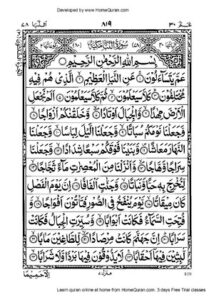 Developed by www.HomeQuran.com
عم ٣٠ ٨١٩
بِسْمِ اللهِ الرَّحْمٰنِ الرَّحِيْمِ
عَمَّ يَتَسَآءَلُوْنَ عَنِ النَّبَاِ الْعَظِيْمِ الَّذِيْ هُمْ فِيْهِ
مُخْتَلِفُوْنَ كَلَّا سَيَعْلَمُوْنَ ثُمَّ كَلَّا سَيَعْلَمُوْنَ اَلَمْ نَجْعَلِ
الْاَرْضَ مِهٰدًا وَّالْجِبَالَ اَوْتَادًا وَّخَلَقْنٰكُمْ اَزْوَاجًا
وَّجَعَلْنَا نَوْمَكُمْ سُبَاتًا وَّجَعَلْنَا الَّيْلَ لِبَاسًا وَّجَعَلْنَا
النَّهَارَ مَعَاشًا وَّبَنَيْنَا فَوْقَكُمْ سَبْعًا شِدَادًا وَّجَعَلْنَا
سِرَاجًا وَّهَّاجًا وَّاَنْزَلْنَا مِنَ الْمُعْصِرٰتِ مَآءً ثَجَّاجًا
لِّنُخْرِجَ بِهٖ حَبًّا وَّنَبَاتًا وَّجَنّٰتٍ اَلْفَافًا اِنَّ يَوْمَ الْفَصْلِ
كَانَ مِيْقَاتًا يَّوْمَ يُنْفَخُ فِي الصُّوْرِ فَتَاْتُوْنَ اَفْوَاجًا
وَّفُتِحَتِ السَّمَآءُ فَكَانَتْ اَبْوَابًا وَّسُيِّرَتِ الْجِبَالُ فَكَانَتْ
سَرَابًا اِنَّ جَهَنَّمَ كَانَتْ مِرْصَادًا لِّلطَّاغِيْنَ مَاٰبًا
لّٰبِثِيْنَ فِيْهَآ اَحْقَابًا لَا يَذُوْقُوْنَ فِيْهَا بَرْدًا وَّلَا شَرَابًا
اِلَّا حَمِيْمًا
Learn quran online at home from HomeQuran.com. 3 days Free Trial classes